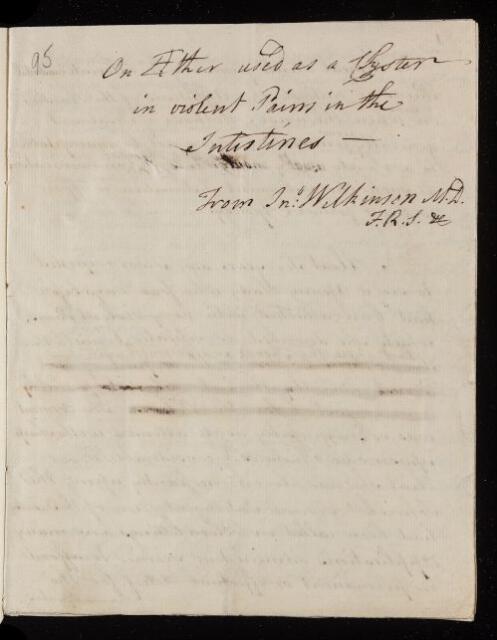 95
On Æther used as a Clyster
in violent Pains in the
Intestines —
From Jn.º Wilkinson M.D.
F.R.S. &c